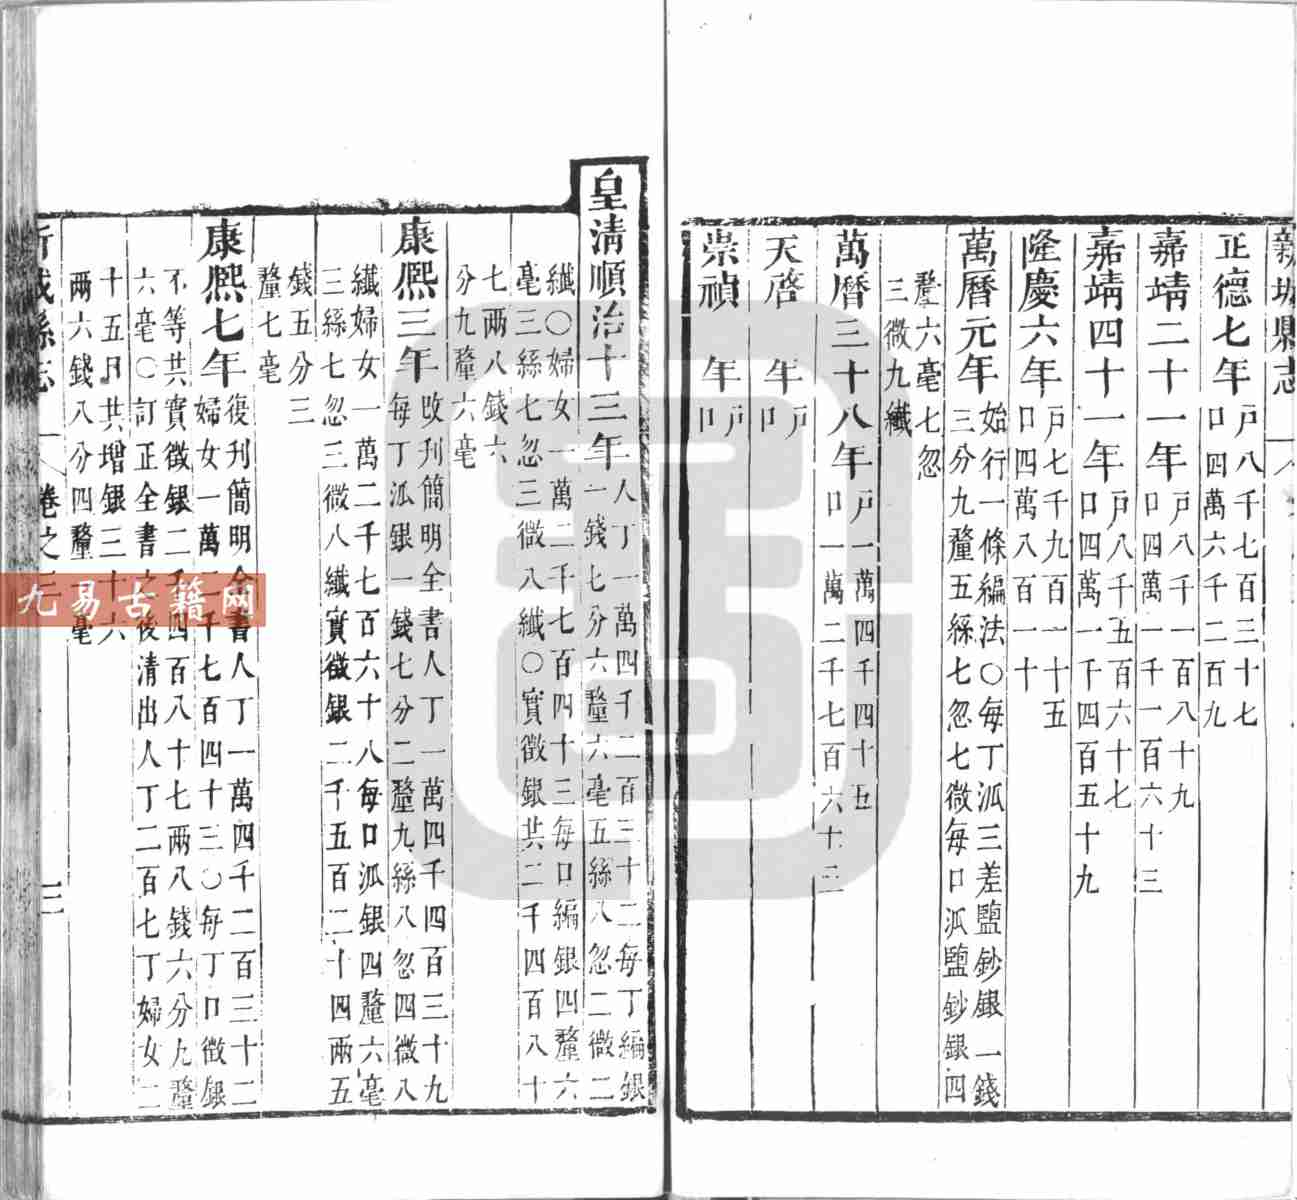 新城縣志
正德七年戶八千七百三十七
口四萬六千二百九
嘉靖二十一年戶八千一百八十九
口四萬一千一百六十三
嘉靖四十一年戶八千五百六十七
口四萬一千四百五十九
隆慶六年戶七千九百一十五
口四萬八百一十
萬曆元年始行一條編法○每丁泒三差鹽鈔銀一錢
三分九釐五絲七忽七微每口泒鹽鈔銀四
釐六毫七忽
三微九纖
萬曆三十八年戶一萬四千四十五
口一萬二千七百六十三
天啓 年戶
口
崇禎 年戶
口
皇清順治十三年人丁一萬四千二百三十二每丁編銀
一錢七分六釐六毫五絲八忽二微二
纖○婦女一萬二千七百四十三每口編銀四釐六
毫三絲七忽三微八纖○實徵銀共二千四百八十
七兩八錢六
分九釐六毫
康熙三年改刊簡明全書人丁一萬四千四百三十九
每丁泒銀一錢七分二釐九絲八忽四微八
纖婦女一萬二千七百六十八每口泒銀四釐六毫
三絲七忽三微八纖實徵銀二千五百二十四兩五
錢五分三
釐七毫
康熙七年復刊簡明全書人丁一萬四千二百三十二
婦女一萬二千七百四十三○每丁口徵銀
不等共實徵銀二千四百八十七兩八錢六分九釐
六毫○訂正全書之後清出人丁二百七丁婦女二
十五口共增銀三十六
兩六錢八分四釐 毫
新城縣志 卷之 三
九易古籍网